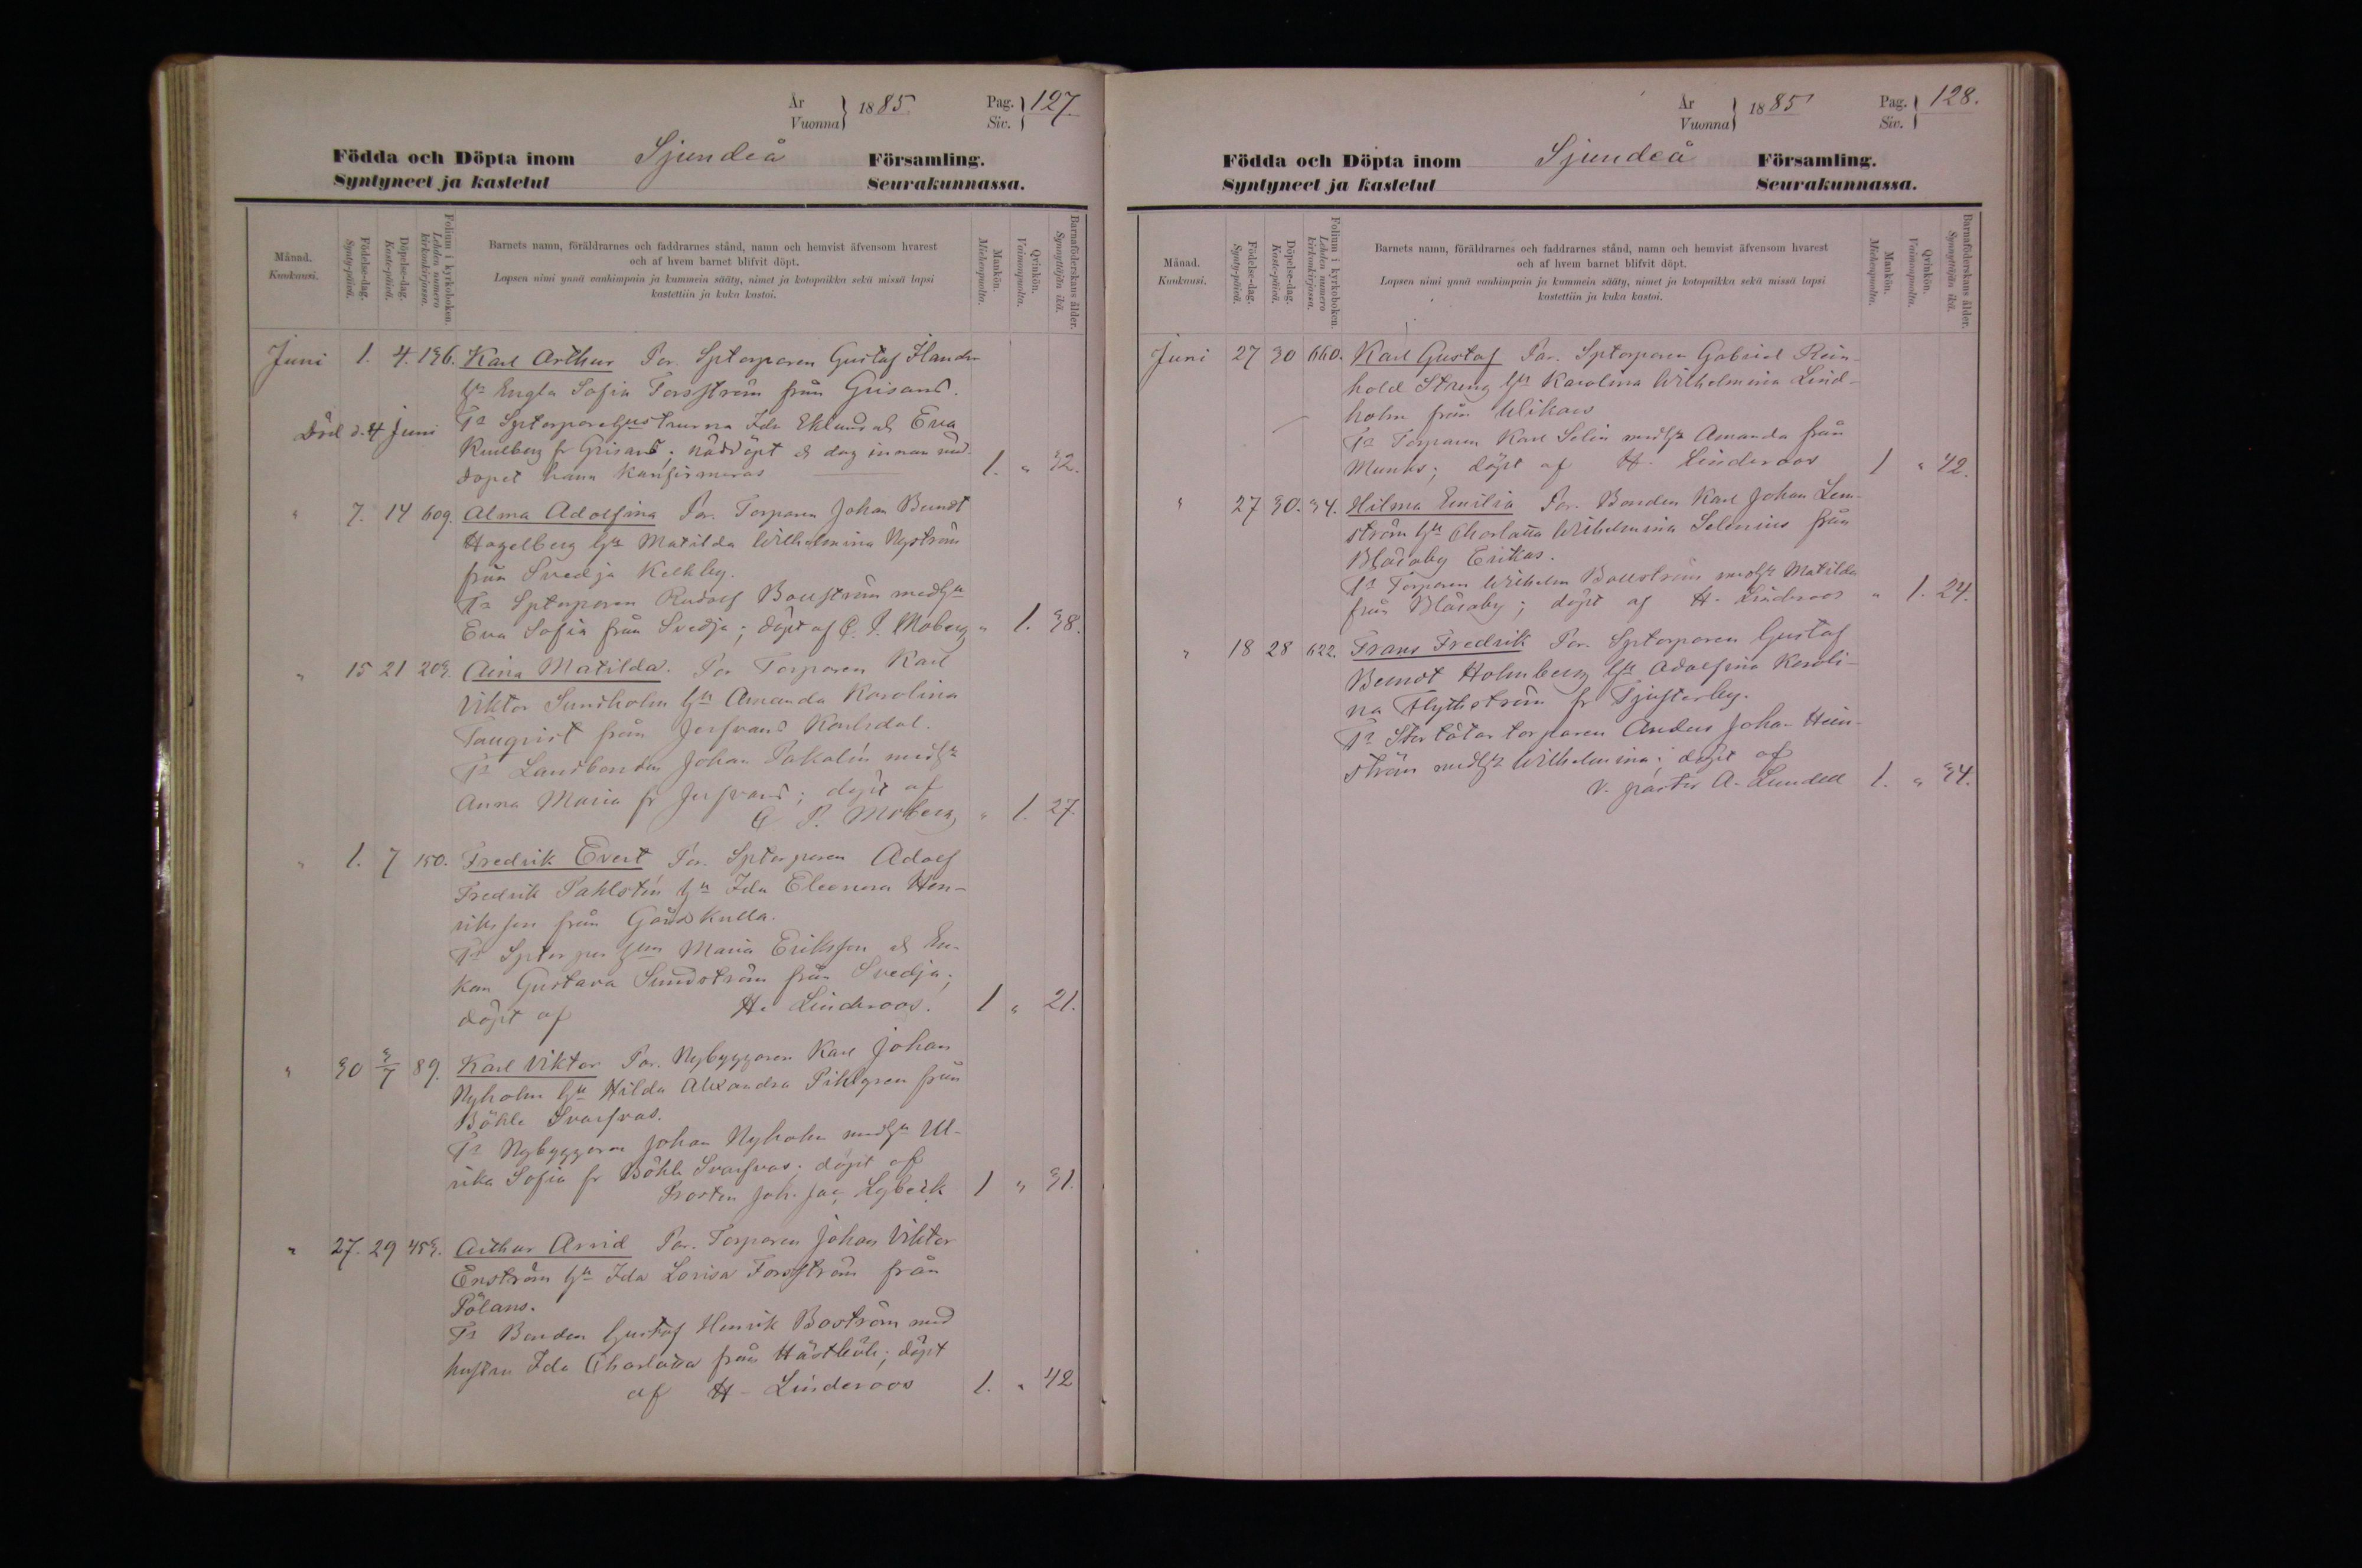 År
Vuonna } 1885. Pag.
Siv. } 127.
Födda och Döpta inom Sjundeå Församling.
Syntyneet ja kastetut Seurakunnassa.
Månad. Kuukausi.
Födelse-dag. Synty-päivä.
Döpelse-dag. Kaste-päivä.
Folium i kyrkoboken. Lehden numero kirkonkirjassa.
Barnets namn, föräldrarnes och faddrarnes stånd, namn och hemvist äfvensom hvarest
och af hvem barnet blifvit döpt.
Lapsen nimi ynnä vanhimpain ja kummein sääty, nimet ja kotopaikka sekä missä lapsi
kastettiin ja kuka kastoi.
Mankön. Miehenpuolta.
Qvinkön. Vaimonpuolta.
Barnaföderskans ålder. Synnyttäjän ikä.
Juni 1. 4. 136. Karl Arthur Par. Sptorparen Gustaf
hu Engla Sofia Forsström från Grisans.
Död d. 4 Juni Ts Ida Eklund & Eva
fr Grisans; nöddöpt & dog innan nöd-
dopet hann konfirmeras 1. " 32.
" 7. 14 609. Alma Adolfina Par. Torparen Johan Berndt
Hagelberg hu Matilda Wilhelmina Nyström
från Svedja Kellkby.
Ts Sptorparen Rudolf Boström med hu
Eva Sofia från Svedja; döpt af C. P. Moberg " 1. 38.
" 15 21 203. Aina Matilda. Par Torparen Karl
Viktor Sundholm hu Amanda Karolina
från Karlsdal.
Ts Landbonden Johan med hu
Anna Maria fr ; döpt af
C P. Moberg " 1. 27.
" 1. 7 150. Fredrik Evert Par. Sptorparen Adolf
Fredrik hu Ida Eleonora Hen-
riksson från Gårdskulla.
Ts Maria Eriksson & En-
kan Gustava Sundström från Svedja;
döpt af H. Linderoos. 1 " 21.
" 30 3/7 89. Karl Viktor Par. Nybyggaren Karl Johan
Nyholm hu Hilda Alexandra Pihlgren från
Böhle Svarfvas.
Ts Nybyggaren Johan Nyholm med hu Ul-
rika Sofia fr Böhle Svarfvas; döpt af
Prosten Joh. Jac. Lybeck 1 " 31.
" 27. 29 453. Arthur Arvid Par. Torparen Johan Viktor
Enström hu Ida Lovisa Forsström från
Pölans.
Ts Bonden Gustaf Henrik Boström med
hustru Ida Charlotta från Hästböle; döpt
af H. Linderoos 1. " 42
År
Vuonna } 1885 Pag.
Siv. } 128.
Födda och Döpta inom Sjundeå Församling.
Syntyneet ja kastetut Seurakunnassa.
Månad. Kuukausi.
Födelse-dag. Synty-päivä.
Döpelse-dag. Kaste-päivä.
Folium i kyrkoboken. Lehden numero kirkonkirjassa.
Barnets namn, föräldrarnes och faddrarnes stånd, namn och hemvist äfvensom hvarest
och af hvem barnet blifvit döpt.
Lapsen nimi ynnä vanhimpain ja kummein sääty, nimet ja kotopaikka sekä missä lapsi
kastettiin ja kuka kastoi.
Mankön. Miehenpuolta.
Qvinkön. Vaimonpuolta.
Barnaföderskans ålder. Synnyttäjän ikä.
Juni 27 30 660. Karl Gustaf Par. Sptorparen Gabriel Rein-
hold Streng hu Karolina Wilhelmina Lind-
holm från
Ts Torparen Karl Selin med hu Amanda från
Munks; döpt af H. Linderoos 1 " 42.
" 27 30. 34. Hilma Emilia Par. Bonden Karl Johan Lem-
ström hu Charlotta Wilhelmina Selenius från
Blåsaby Erikas.
Ts Torparen Wilhelm Boström med hu Matilda
från Blåsaby; döpt af H. Linderoos " 1. 24.
" 18 28 622. Frans Fredrik Par. Sptorparen Gustaf
Berndt Holmberg hu Adolfina Karoli-
na Flythström fr Tjusterby.
Ts torparen Anders Johan Hein-
ström med hu Wilhelmina; döpt af
v. pastor A. Lundell 1. " 34.